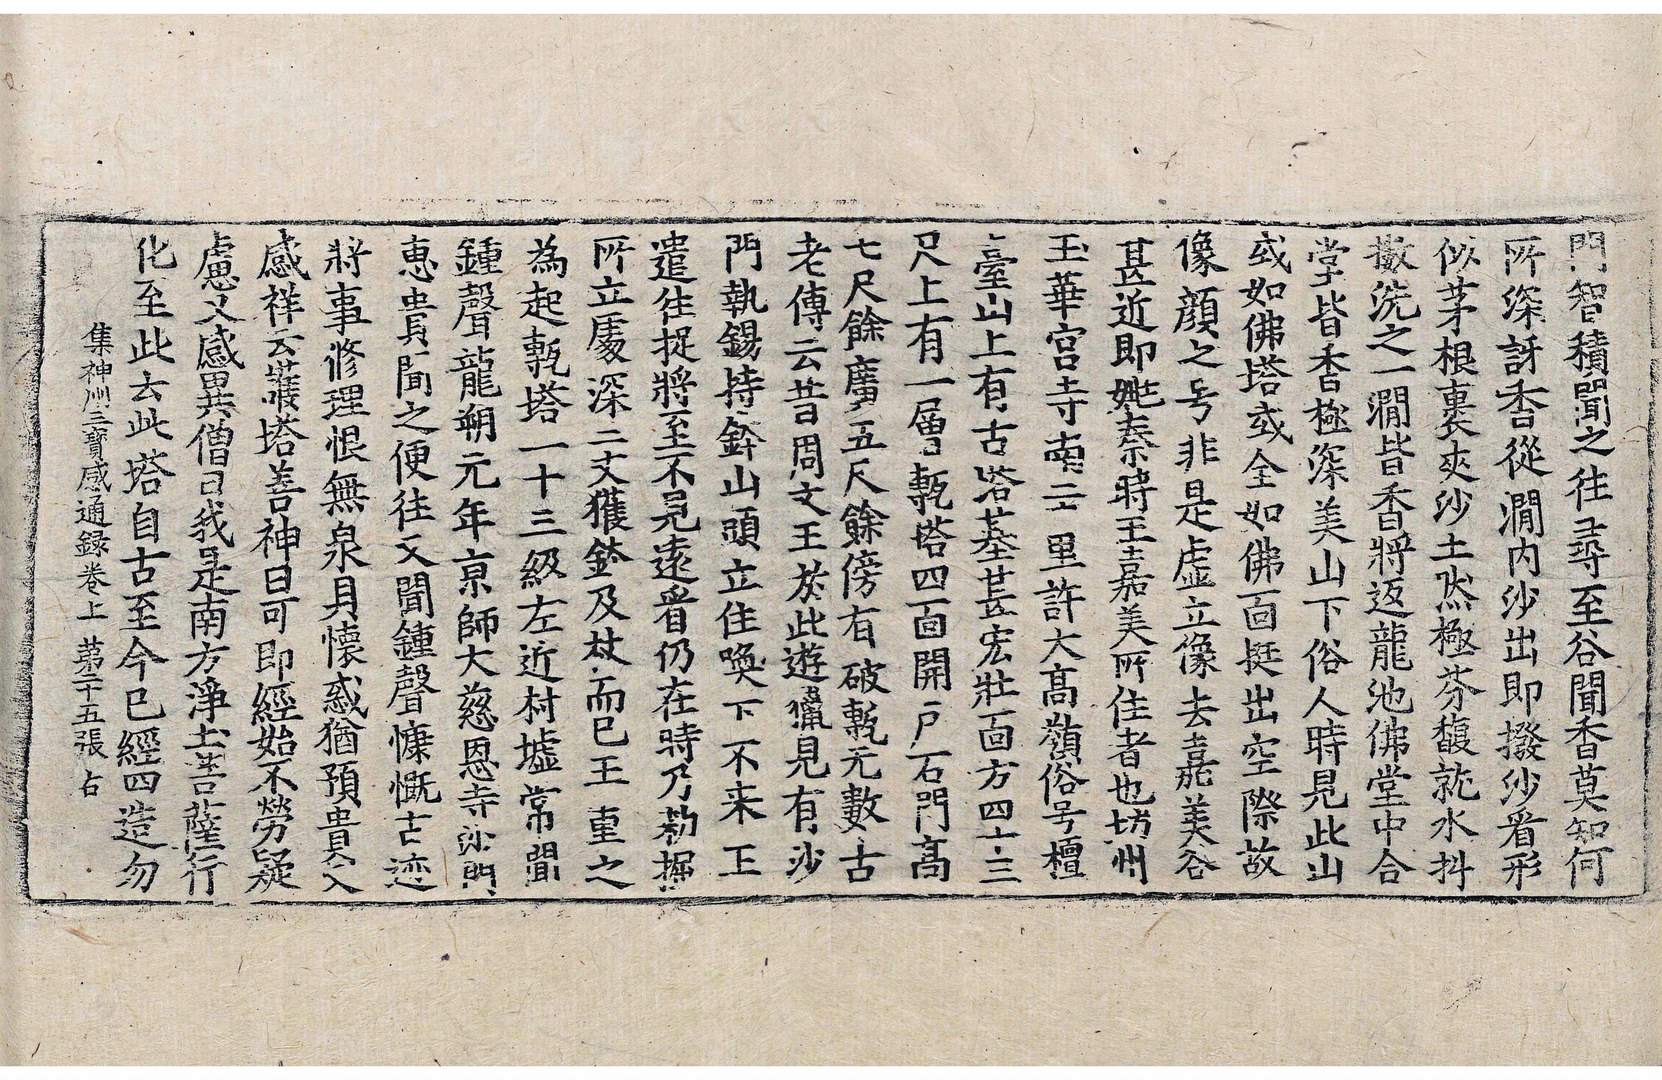 門智積聞之往尋至谷聞香莫知何
所深訝香從澗内沙出即撥沙看形
似茅根裹夾沙土然極芬馥就水抖
擻洗之一澗皆香將返龍池佛堂中合
堂皆香極深美山下俗人時見此山
或如佛塔或全如佛面挺出空際故
像顔之号非是虛立像去嘉美谷
甚近即姚秦時王嘉美所住者也坊州
玉華宮寺南二十里許大高嶺俗号檀
臺山上有古塔基甚宏壯面方四十三
尺上有一層甎塔四面開戶石門高
七尺餘廣五尺餘傍有破甎无數古
老傳云昔周文王於此遊獵見有沙
門執錫持鉢山頭立住喚下不来王
遣往捉將至不見遠看仍在時乃勑掘
所立處深二丈獲鉢及杖而已王重之
為起甎塔一十三級左近村墟常聞
鍾聲龍朔元年京師大慈恩寺沙門
惠貴聞之便往又聞鍾聲慷慨古迹
將事修理恨無泉貝懷惑猶預貴又
感祥云護塔善神曰可即經始不勞疑
慮又感異僧曰我是南方淨土菩薩行
化至此去此塔自古至今已經四造勿
集神州三寶感通録卷上 第二十五張 占